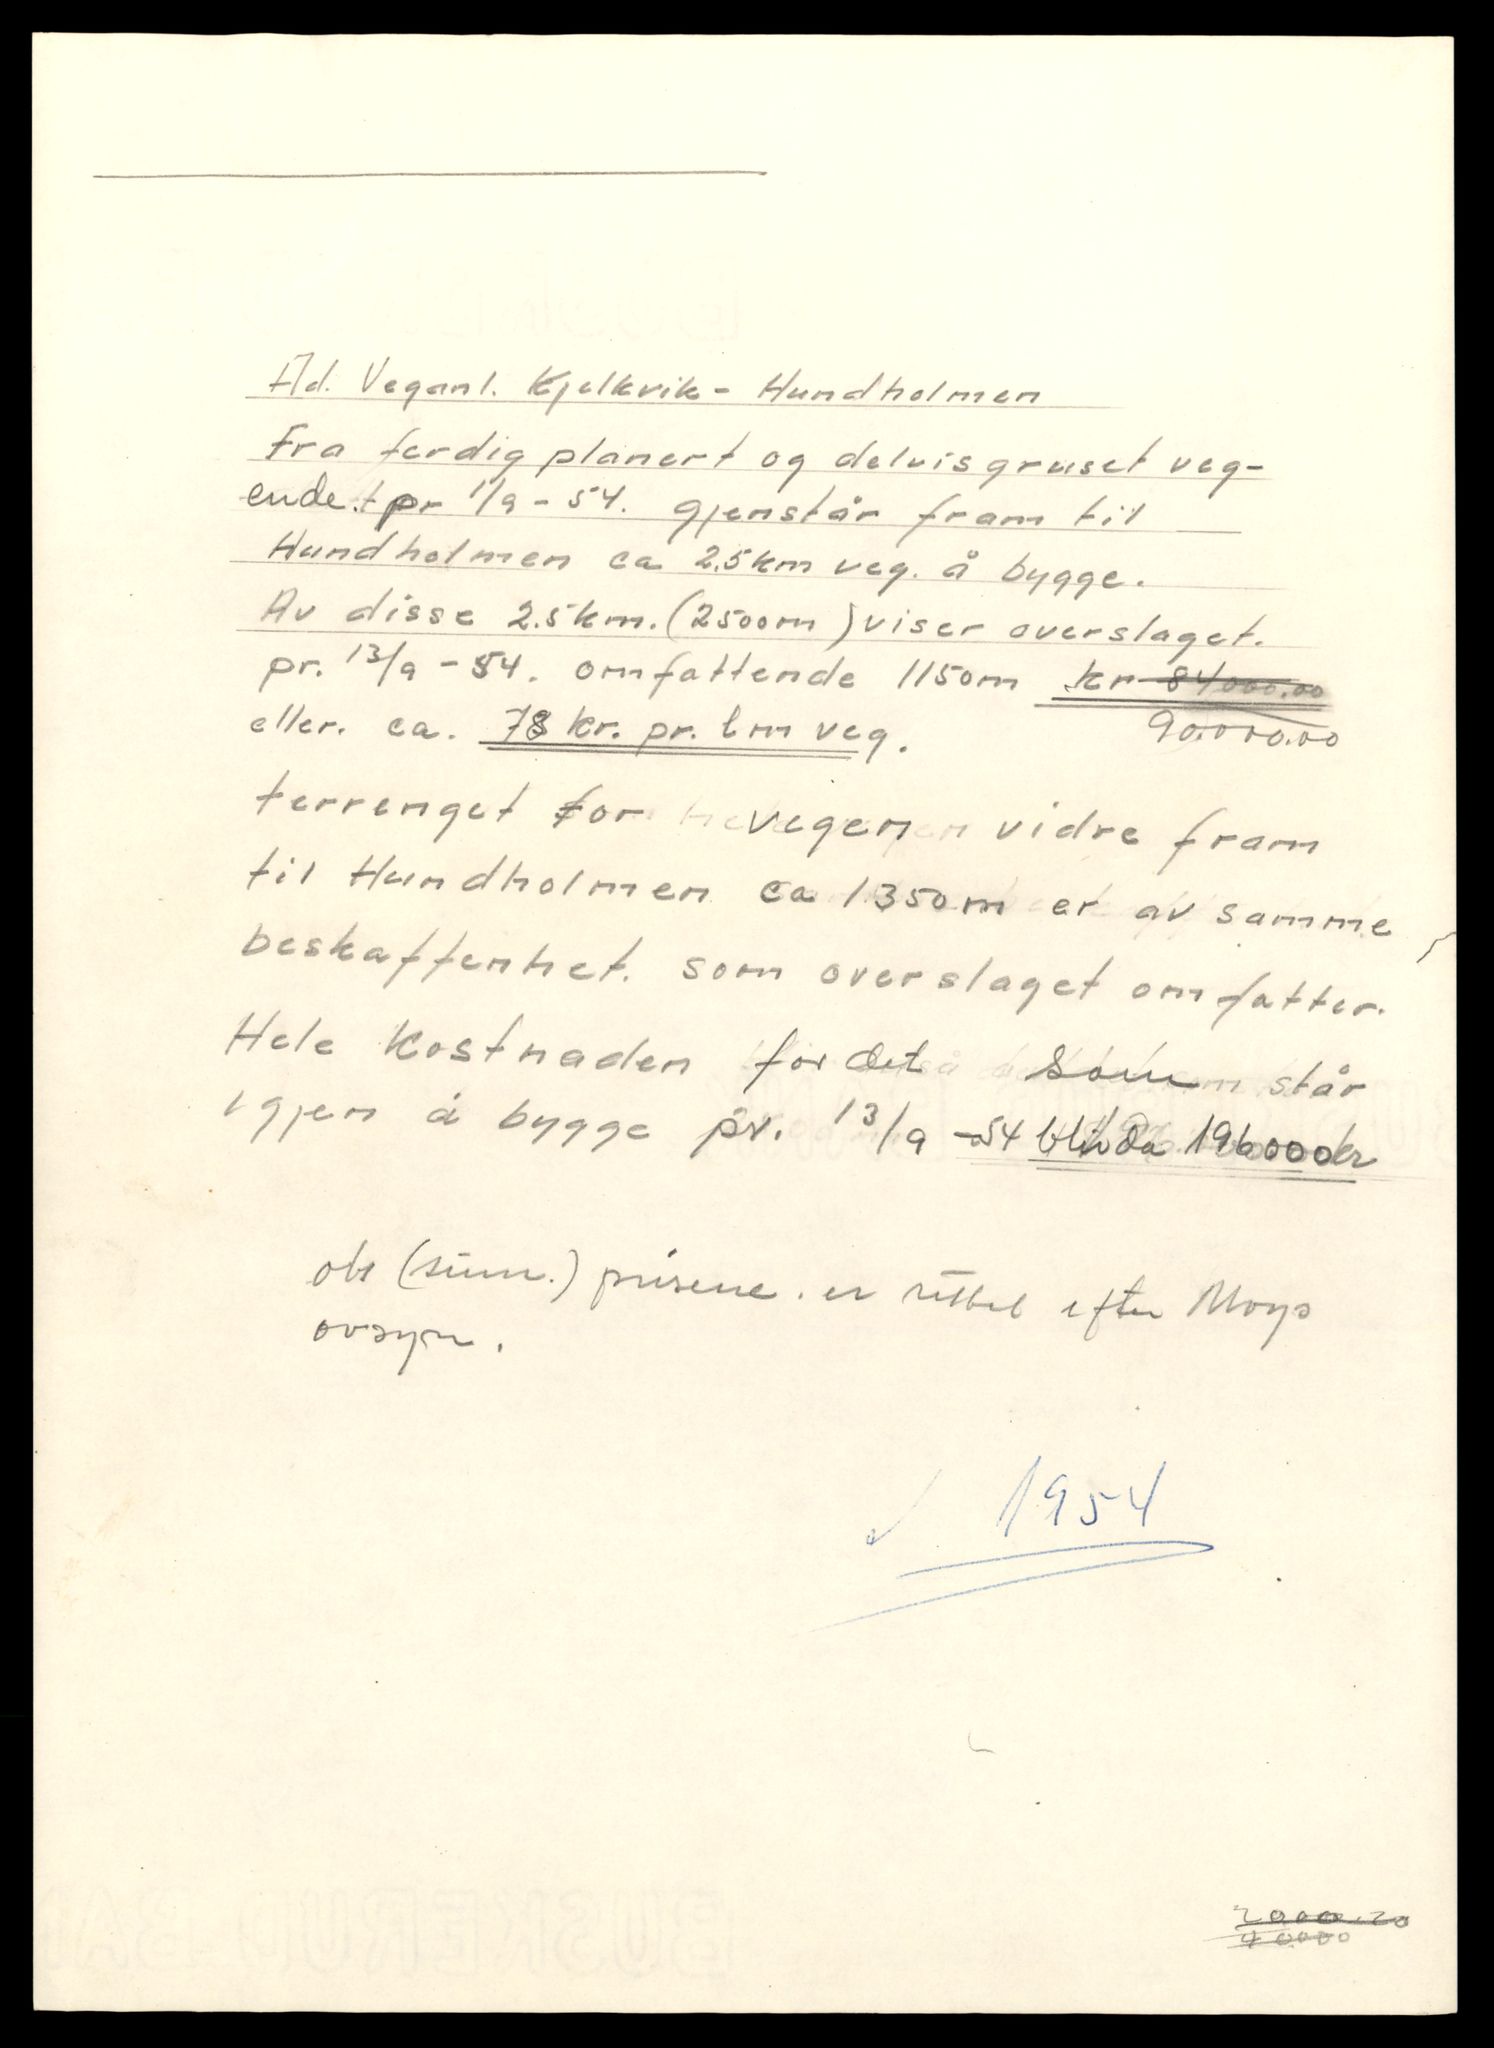 Ad. Veganl. Kjelkvik - Hundholmen
Fra ferdig planert og delvis gruset veg-
ende. pr 1/9 - 54. gjenstår fram til
Hundholmen ca 2.5km veg. å bygge.
Av disse 2.5km. (2500m) viser overslaget.
pr. 13/9 - 54. omfattende 1150m kr 84000.00
90.000.00
eller. ca. 78 kr. pr. lm veg.
terrenget for vegen vidre fram
til Hundholmen ca 1350m er av samme
beskaffenhet. som overslaget omfatter.
Hele kostnaden for det som står
igjen å bygge pr. 13/9 - 54 blir da 196000kr
obs (sum.) prisene. er rettet efter Moys
ovsyn.
1954
2000.20
40000
BUSKERUD